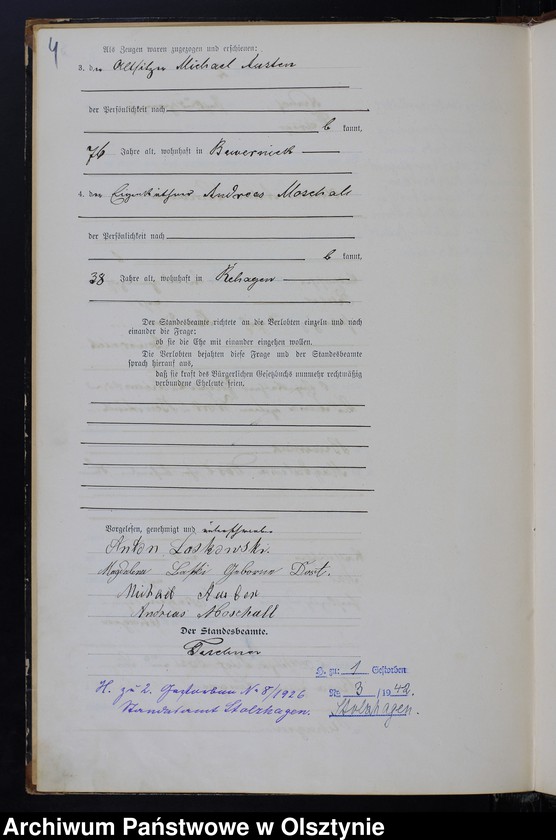 4
Als Zeugen waren zugezogen und erschienen:
3. der Altsitzer Michael Austen
der Persönlichkeit nach
b kannt,
76 Jahre alt, wohnhaft in Bewernick
4. der Eigenkäthner Andreas Moschall
der Persönlichkeit nach
b kannt,
38 Jahre alt, wohnhaft in Rehagen
Der Standesbeamte richtete an die Verlobten einzeln und nach
einander die Frage:
ob sie die Ehe mit einander eingehen wollen.
Die Verlobten bejahten diese Frage und der Standesbeamte
sprach hierauf aus,
daß sie kraft des Bürgerlichen Gesetzbuchs nunmehr rechtmäßig
verbundene Eheleute seien.
Vorgelesen, genehmigt und unterschrieben
Anton Laskowski.
Magdalena geborene Dost.
Michael Austen
Andreas Moschall
Der Standesbeamte.
H. zu: 1 Gestorben
No 3 /1942.
Stolzhagen.
H. zu 2. Gestorben No 8/1926
Standesamt Stolzhagen.
Archiwum Państwowe w Olsztynie